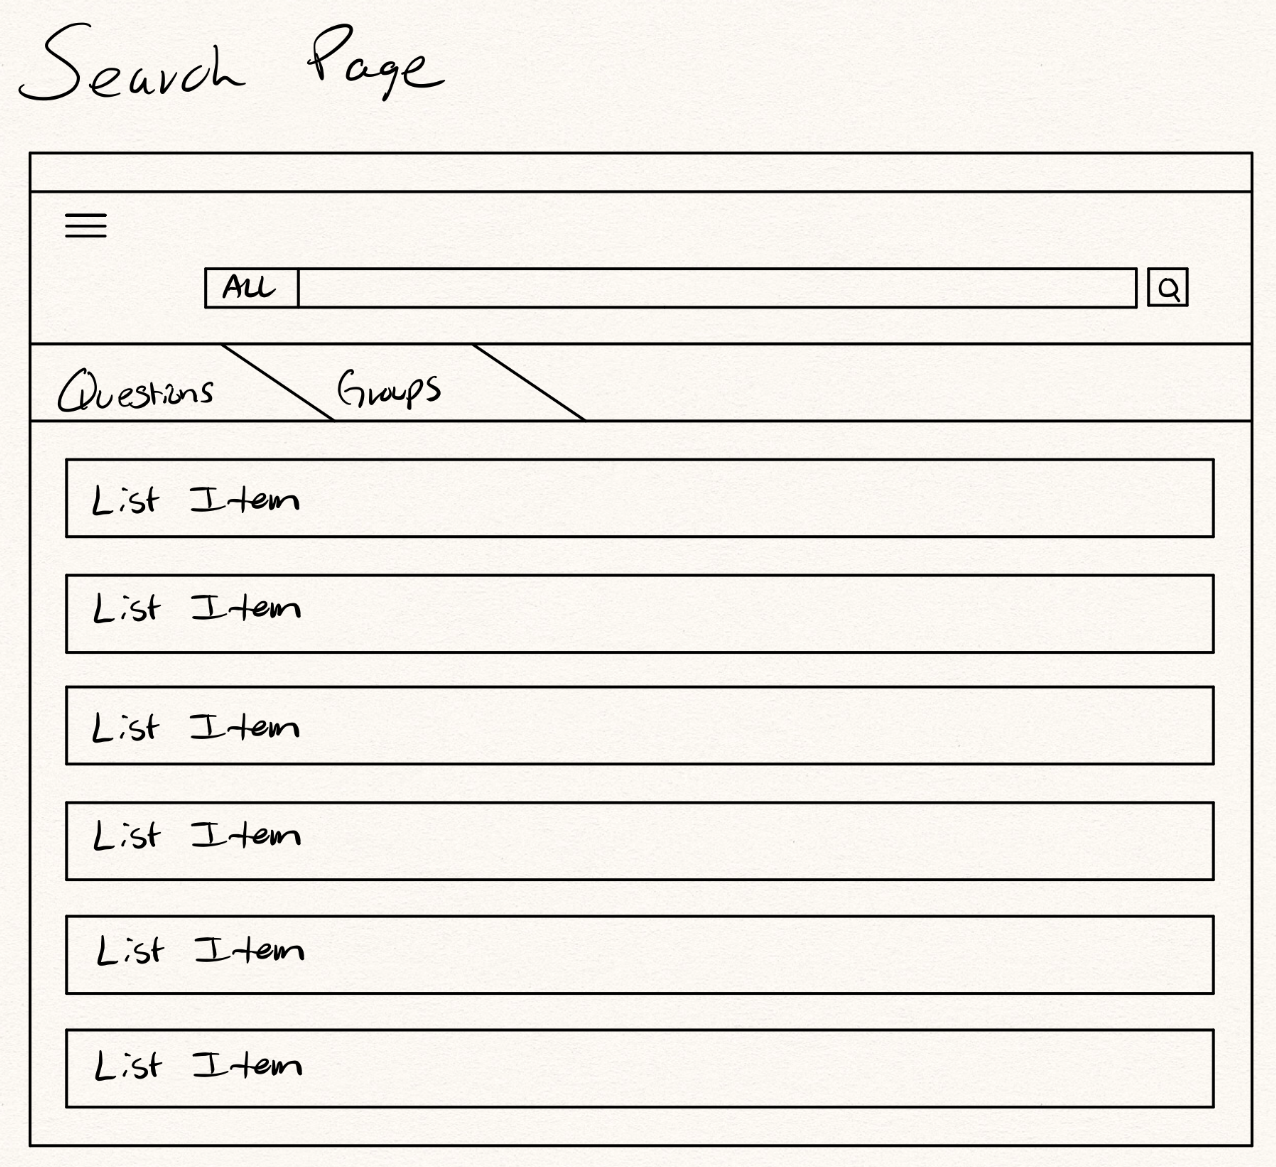 Search Page
ALL
Questions Groups
List Item
List Item
List Item
List Item
List Item
List Item